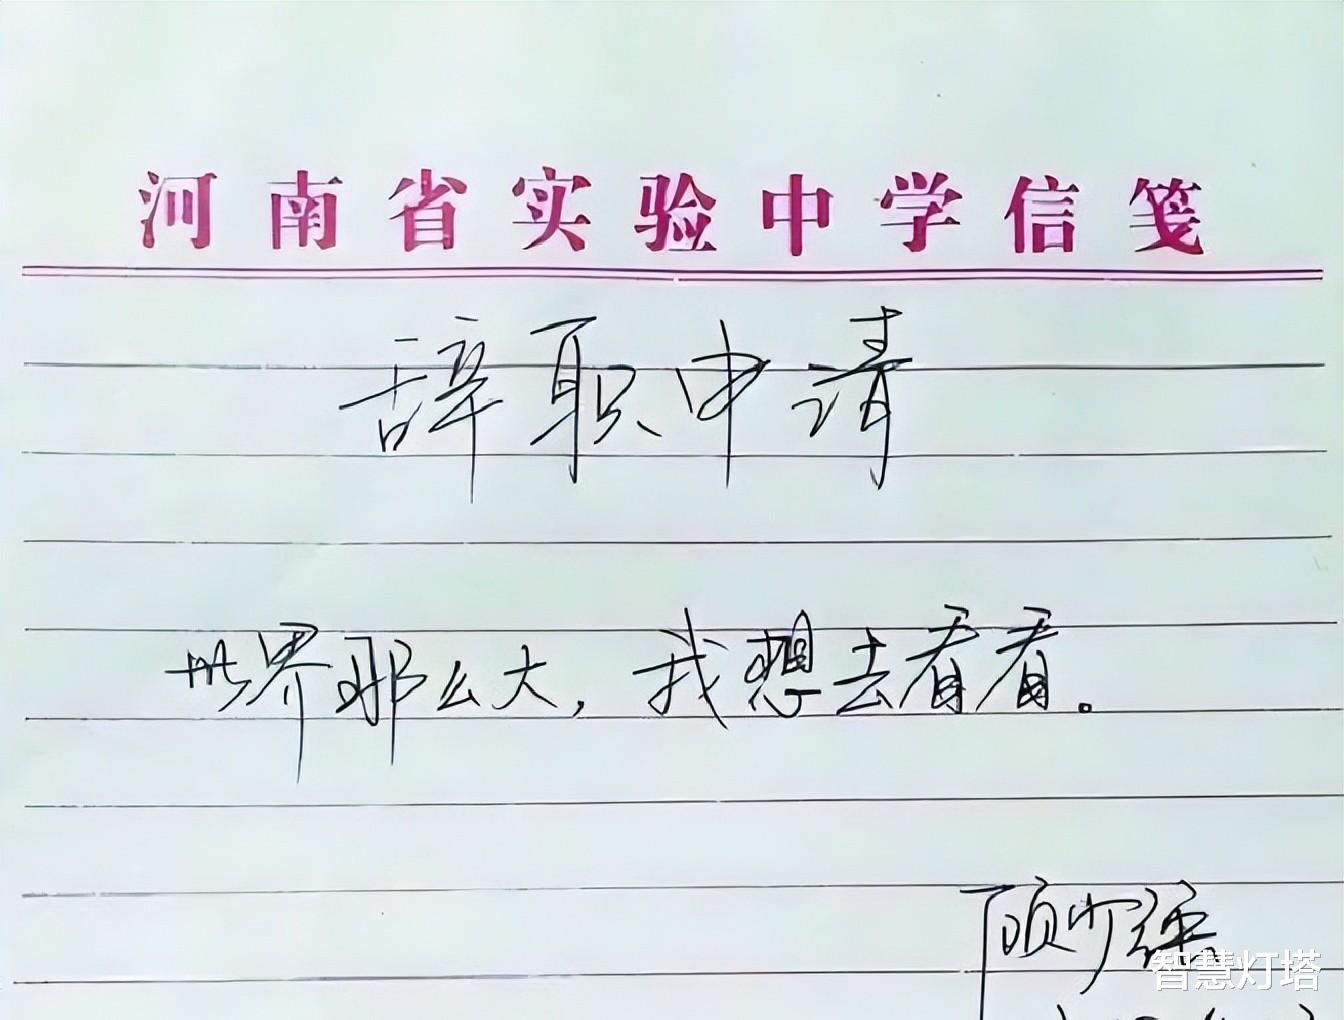 河南省实验中学信笺
辞职申请
世界那么大，我想去看看。
顾少强
智慧灯塔